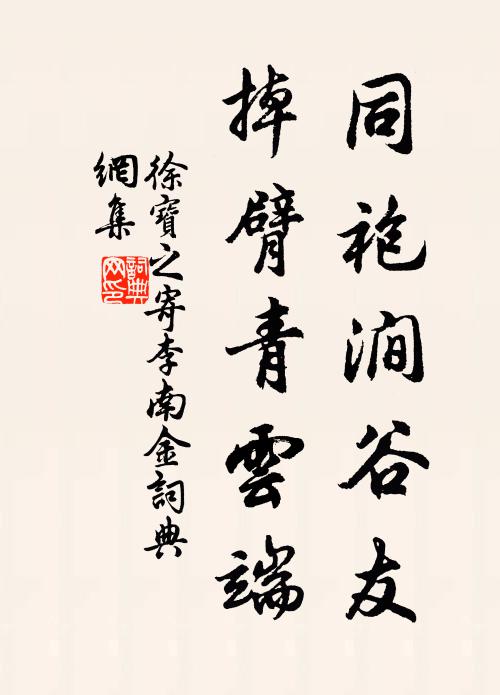 同袍澗谷友
掉臂青雲端
徐寶之寄李南金詞典
網集
詞典
网印